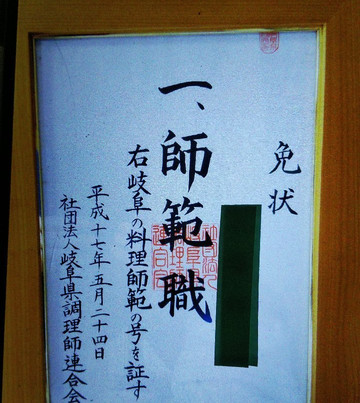 免状
一、師範職
右岐阜の料理師範の号を証す
平成十七年五月二十四日
社団法人岐阜県調理師連合会